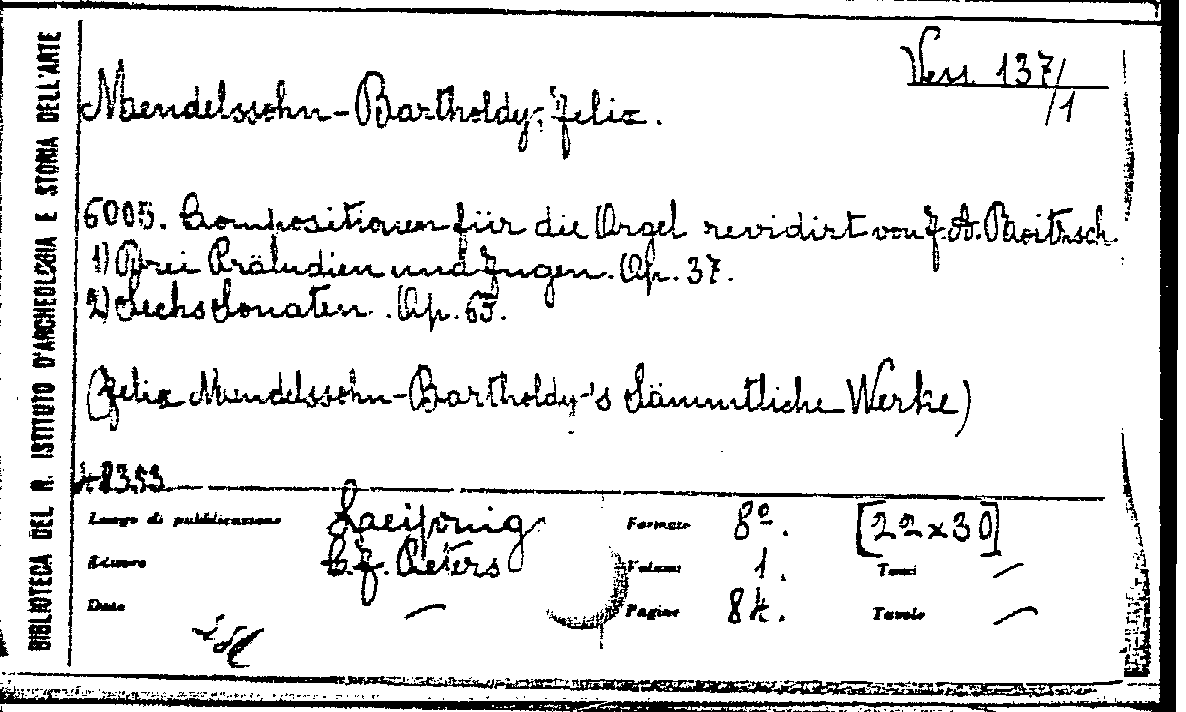 BIBLIOTECA DEL R. ISTITUTO D'ARCHEOLOGIA E STORIA DELL'ARTE
Vess. 137/1
Mendelssohn-Bartholdy, Felix.
6005. Compositionen für die Orgel revidirt von F. A. Roitzsch.
1) Drei Präludien und Fugen. Op. 37.
2) Sechs Sonaten. Op. 65.
(Felix Mendelssohn-Bartholdy's Sämmtliche Werke)
48353
Luogo di pubblicazione Laeipzig Formato 8º. [22x30]
Editore C.F. Peters Volumi 1. Tomi —
Data — Pagine 84. Tavole —